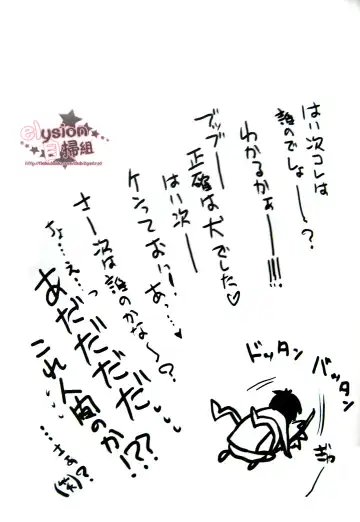 はい次コレは
誰のでしょー？
わかるかぁー!!!
ブッブー
正確は犬でした♡
はい次ー
ケンっておい！
あっ…♥
さー次は誰のかな〜？
ちょ…え…っ
あだだだだ
これ人間のか!??
…さぁ？
(笑)
ドッタン
バッタン
ぎゃっ
elysion
自掃組